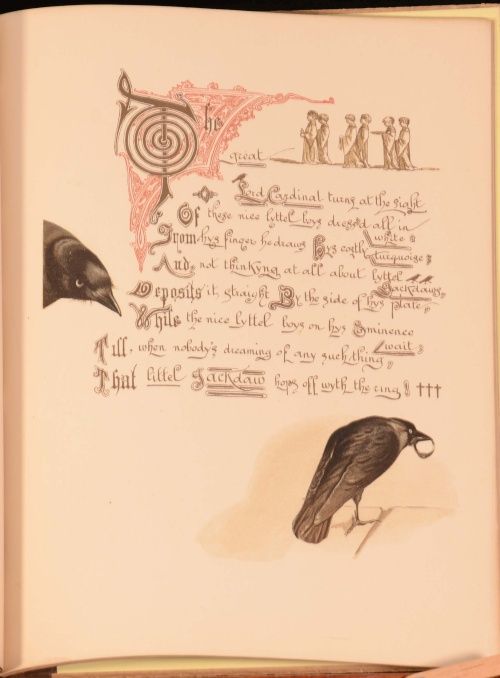 The
great
Lord Cardinal turns at the sight
Of these nice lyttel boys dressed all in
white;
From hys finger he draws hys costly
turquoise;
And, not thinkyng at all about lyttel
Jackdaws,
Deposits it, straight By the side of hys plate,
While the nice lyttel boys on hys Eminence
wait;
Till, when nobody's dreaming of any such thing,
That littel Jackdaw hops off wyth the ring! †††